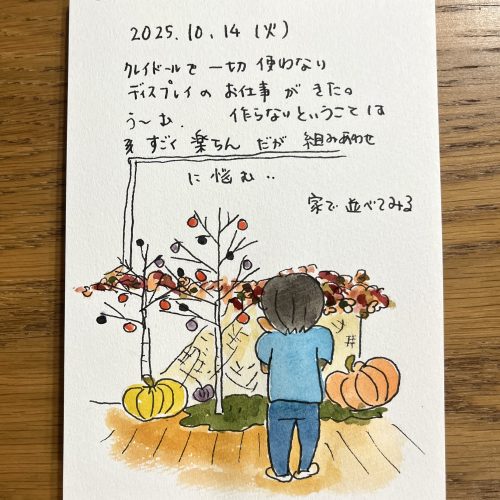 2025.10.14（火）
クレイドールを一切使わない
ディスプレイのお仕事がきた。
う〜む. 作らないということは
すごく楽ちんだが組みあわせ
に悩む..
家で並べてみる